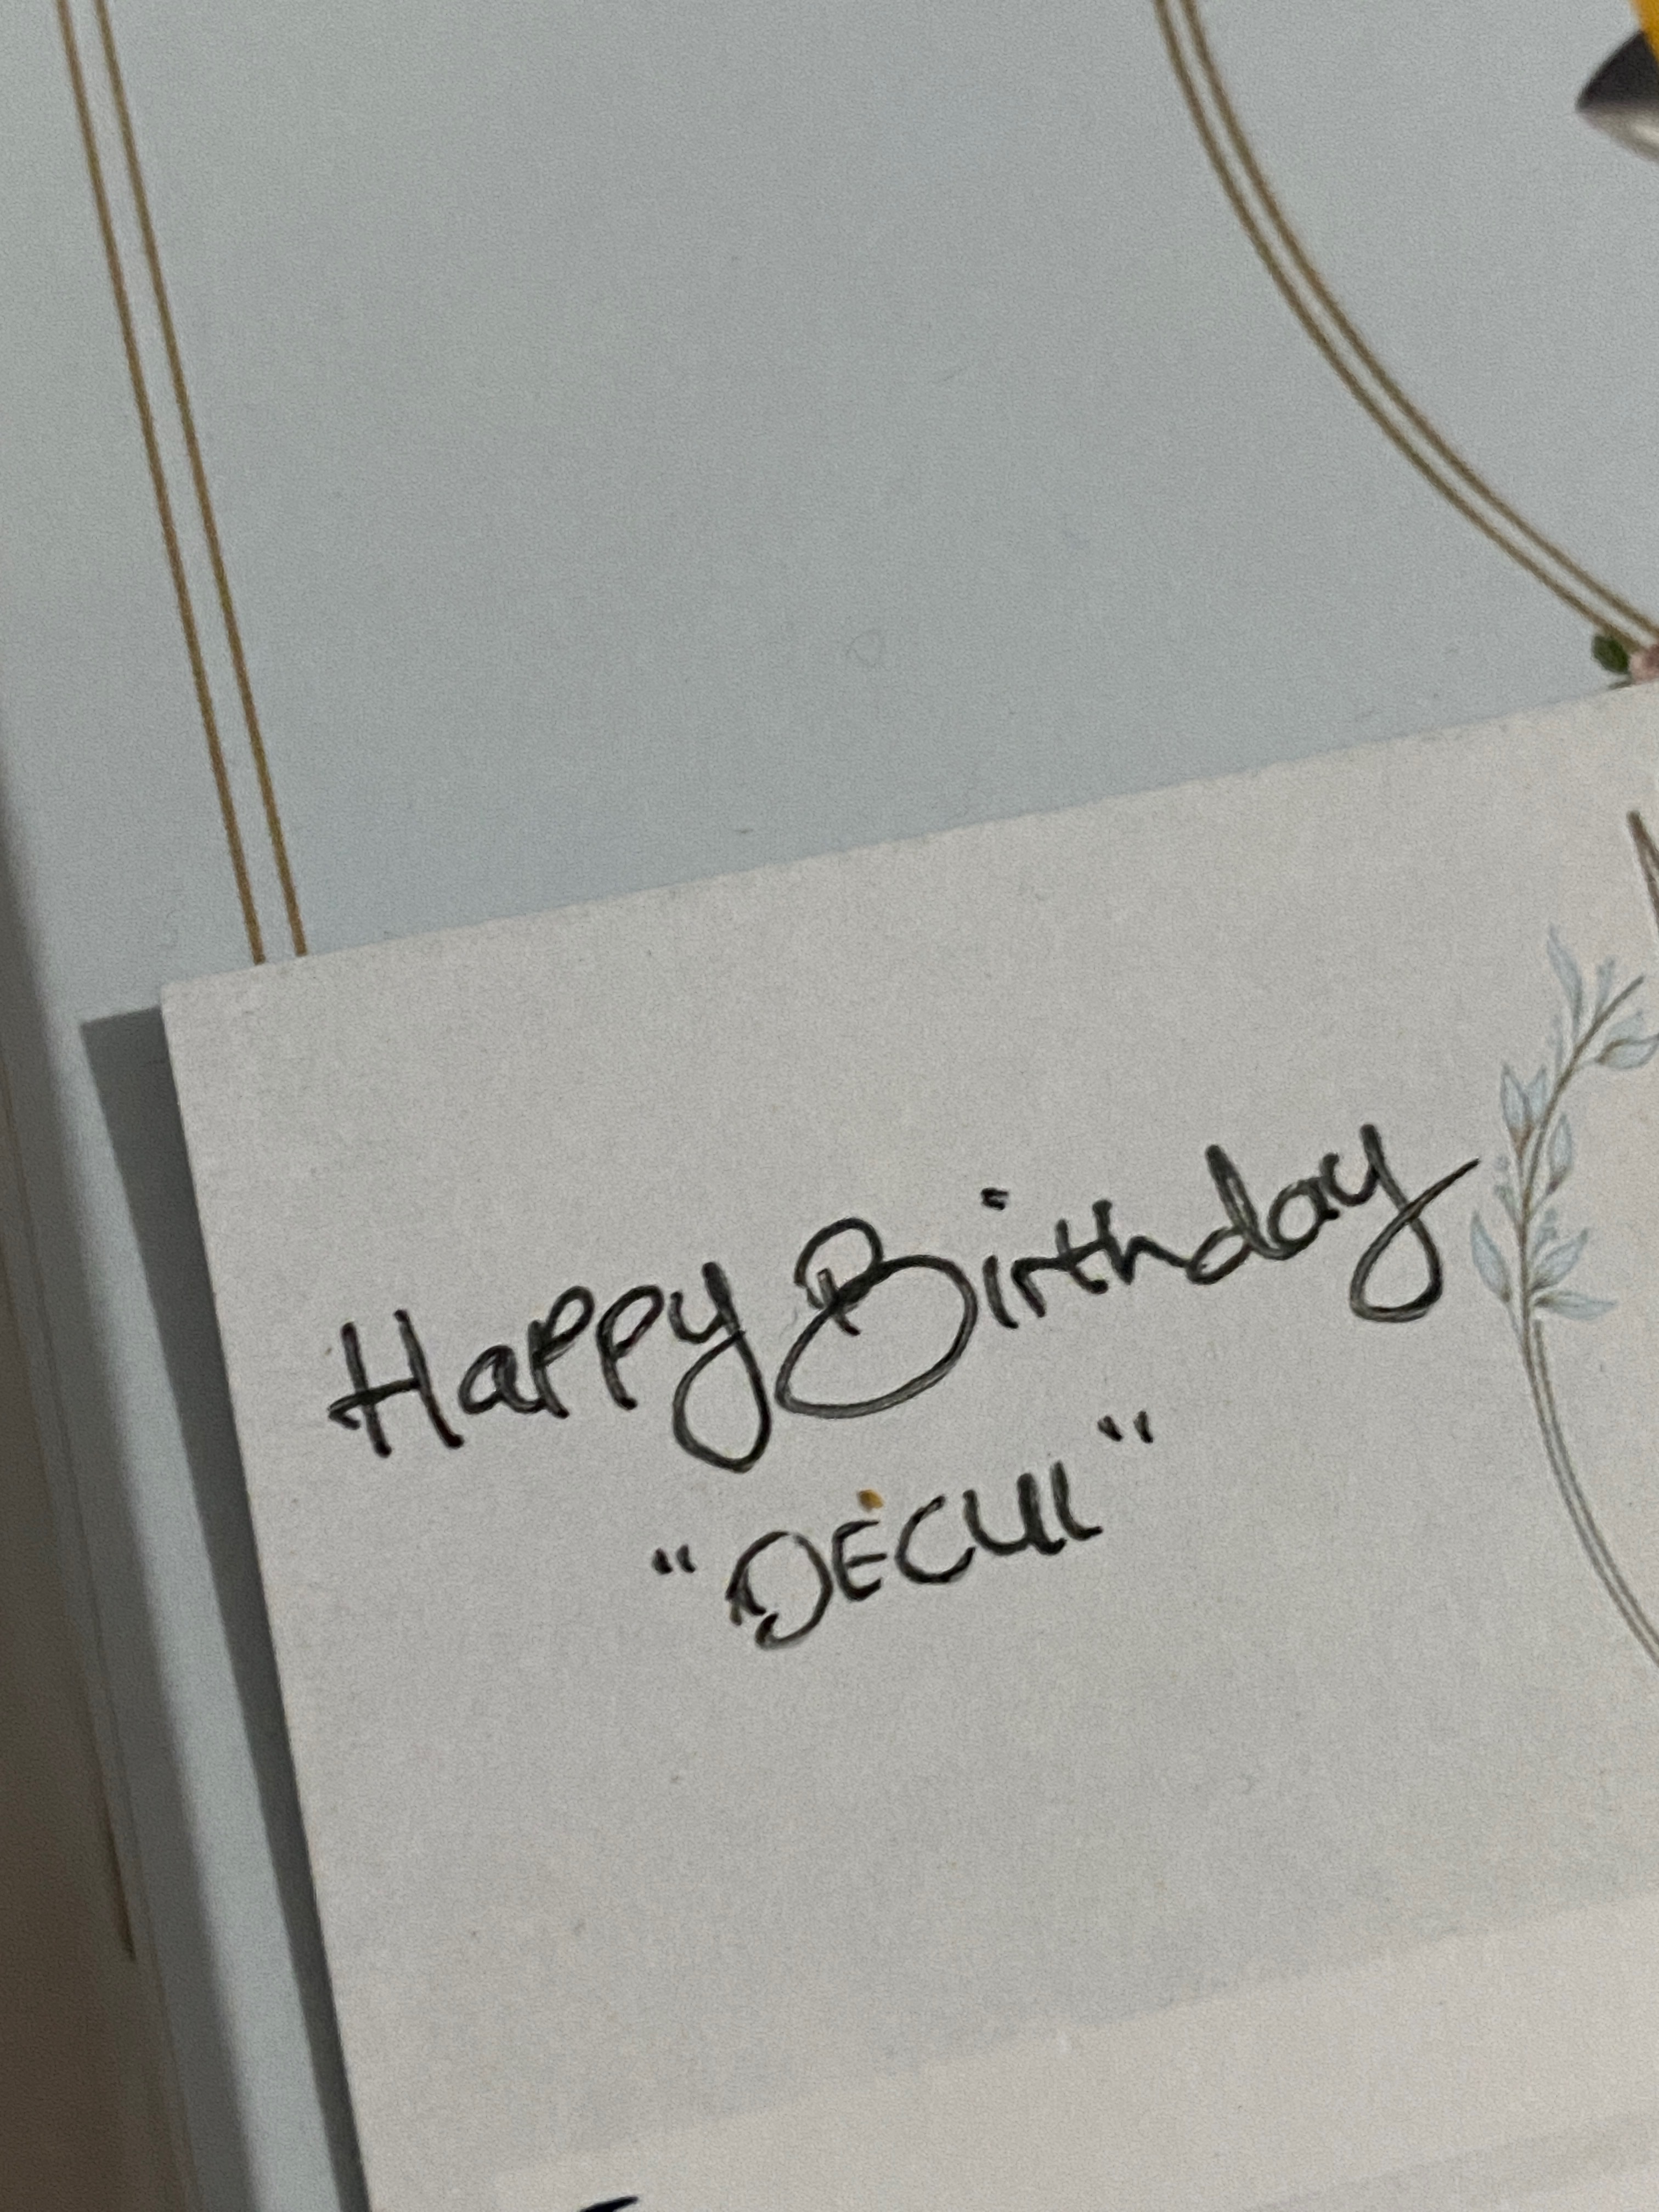 Happy Birthday
"DECUL"